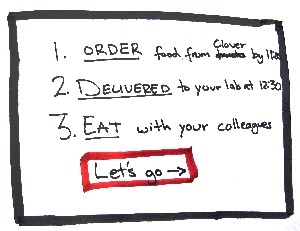 1. ORDER food from Clover by
2. DELIVERED to your lab at 12:30
3. EAT with your colleagues
Let's go →